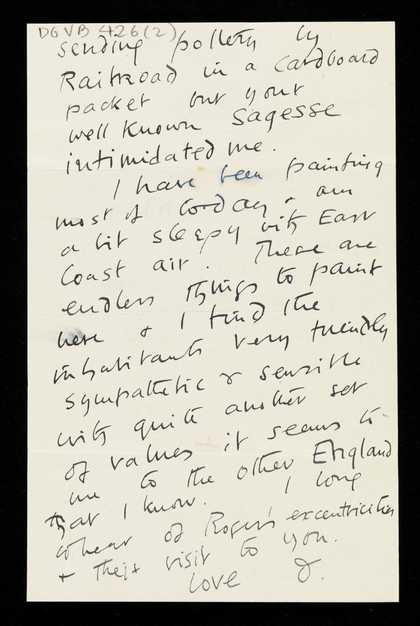 DGVB 426(2)
sending pottery by
Railroad in a cardboard
packet but your
well known Sagesse
intimidated me.
I have been painting
most of to-day & am
a bit sleepy with East
Coast air. There are
endless things to paint
here & I find the
inhabitants very friendly
sympathetic & sensible
with quite another set
of values it seems to
me to the other England
that I know. I long
to hear of Roger's excentricities
& their visit to you.
love D.